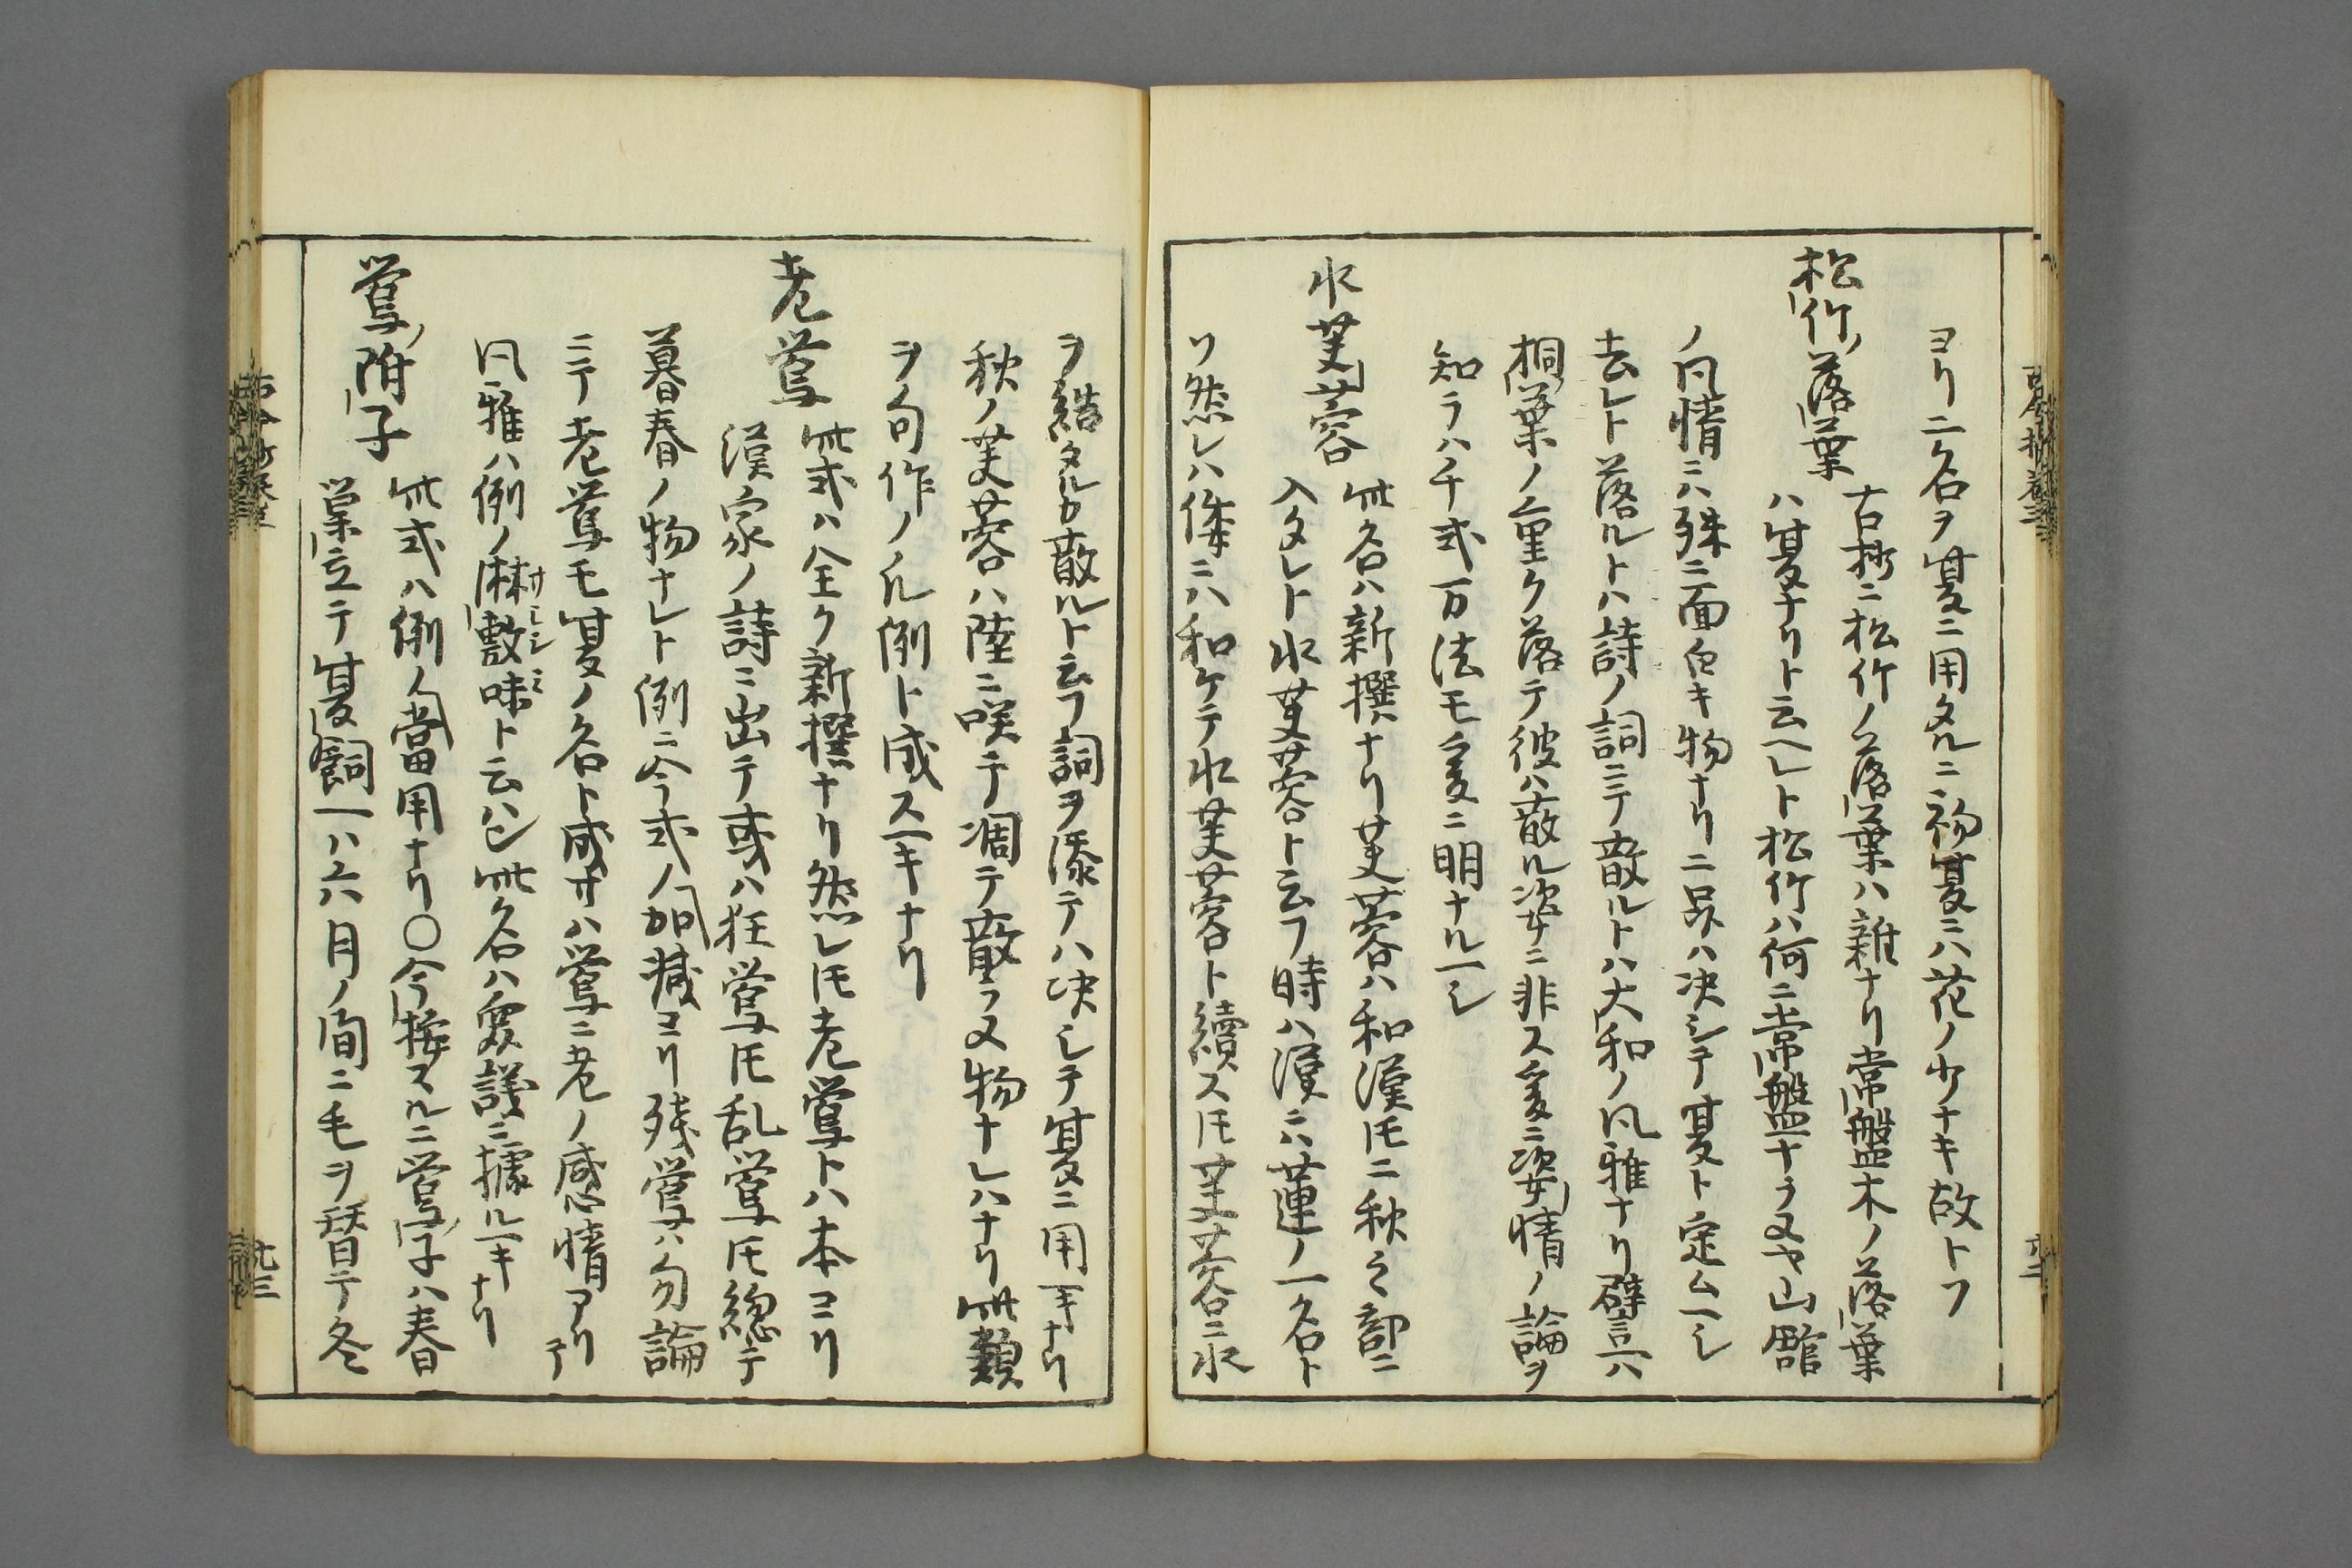 ヨリ二名ヲ夏ニ用タルニ初夏ニハ花ノ少ナキ故トフ
松竹ノ落葉
古抄ニ松竹ノ落葉ハ雑ナリ常盤木ノ落葉
ハ夏ナリト云ヘレト松竹ハ何ニ常盤ナラヌヤ山舘
ノ凡情ニハ殊ニ面白キ物ナリ二品ハ决シテ夏ト定ムヘシ
去レト落ルトハ詩ノ詞ニテ散ルトハ大和ノ凡雅ナリ譬ヘハ
桐ノ葉ノ重ク落テ彼ハ散ル姿ニ非ス爰ニ姿情ノ論ヲ
知ラハ千式万法モ爰ニ明ナルヘシ
水芙蓉
此名ハ新撰ナリ芙蓉ハ和漢𪜈ニ秋之部ニ
入タレト水芙蓉ト云フ時ハ漢ニハ蓮ノ一名ト
ソ然レハ俳ニハ和ケテ水芙蓉ト續ス𪜈芙蓉ニ水
ヲ結タルカ散ルト云フ詞ヲ添テハ决シテ夏ニ用ヘキナリ
秋ノ芙蓉ハ陸ニ咲テ凋テ散ラヌ物ナレハナリ此類
ヲ句作ノ凡例ト成スヘキナリ
老鶯
此式ハ全ク新撰ナリ然レ𪜈老鶯トハ本ヨリ
漢家ノ詩ニ出テ或ハ狂鶯𪜈乱鶯𪜈総テ
暮春ノ物ナレト例ニ今式ノ加减ヨリ残鶯ハ勿論
ニテ老鶯モ夏ノ名ト成サハ鶯ニ老ノ感情アリテ
凡雅ハ例ノ麻敷味ト云ハン此名ハ衆議ニ據ルヘキナリ
鶯ノ附子
此式ハ例ノ當用ナリ〇今按スルニ鶯ノ子ハ春
巣立テ夏飼ヘハ六月ノ間ニ毛ヲ替テ冬